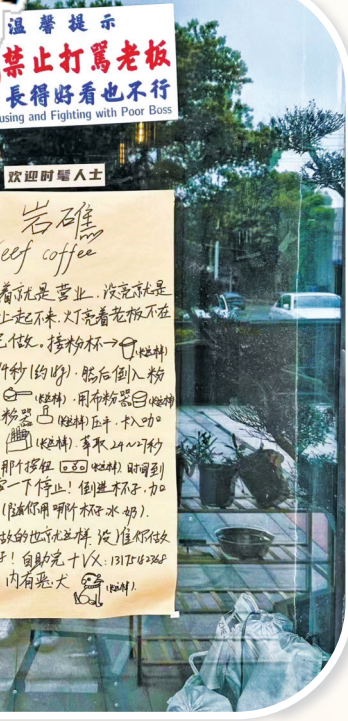 温馨提示
禁止打駡老板
長得好看也不行
using and Fighting with Poor Boss
欢迎时髦人士
岩礁
eef coffee
着就是营业,没亮就是
上起不来,灯亮着老板不在
己做,接粉杯→(这样)
4秒(约18g),然后倒入粉
(这样),用布粉器(这样)
粉器(这样)压平,卡入咖
(这样),萃取24~27秒
那个按钮(这样),时间到
一下停止!倒进杯子,加
(随你用哪个杯子水奶).
故的也京尤这样,没准你做
!自助完十VX:13175162368
内有恶犬(这样).